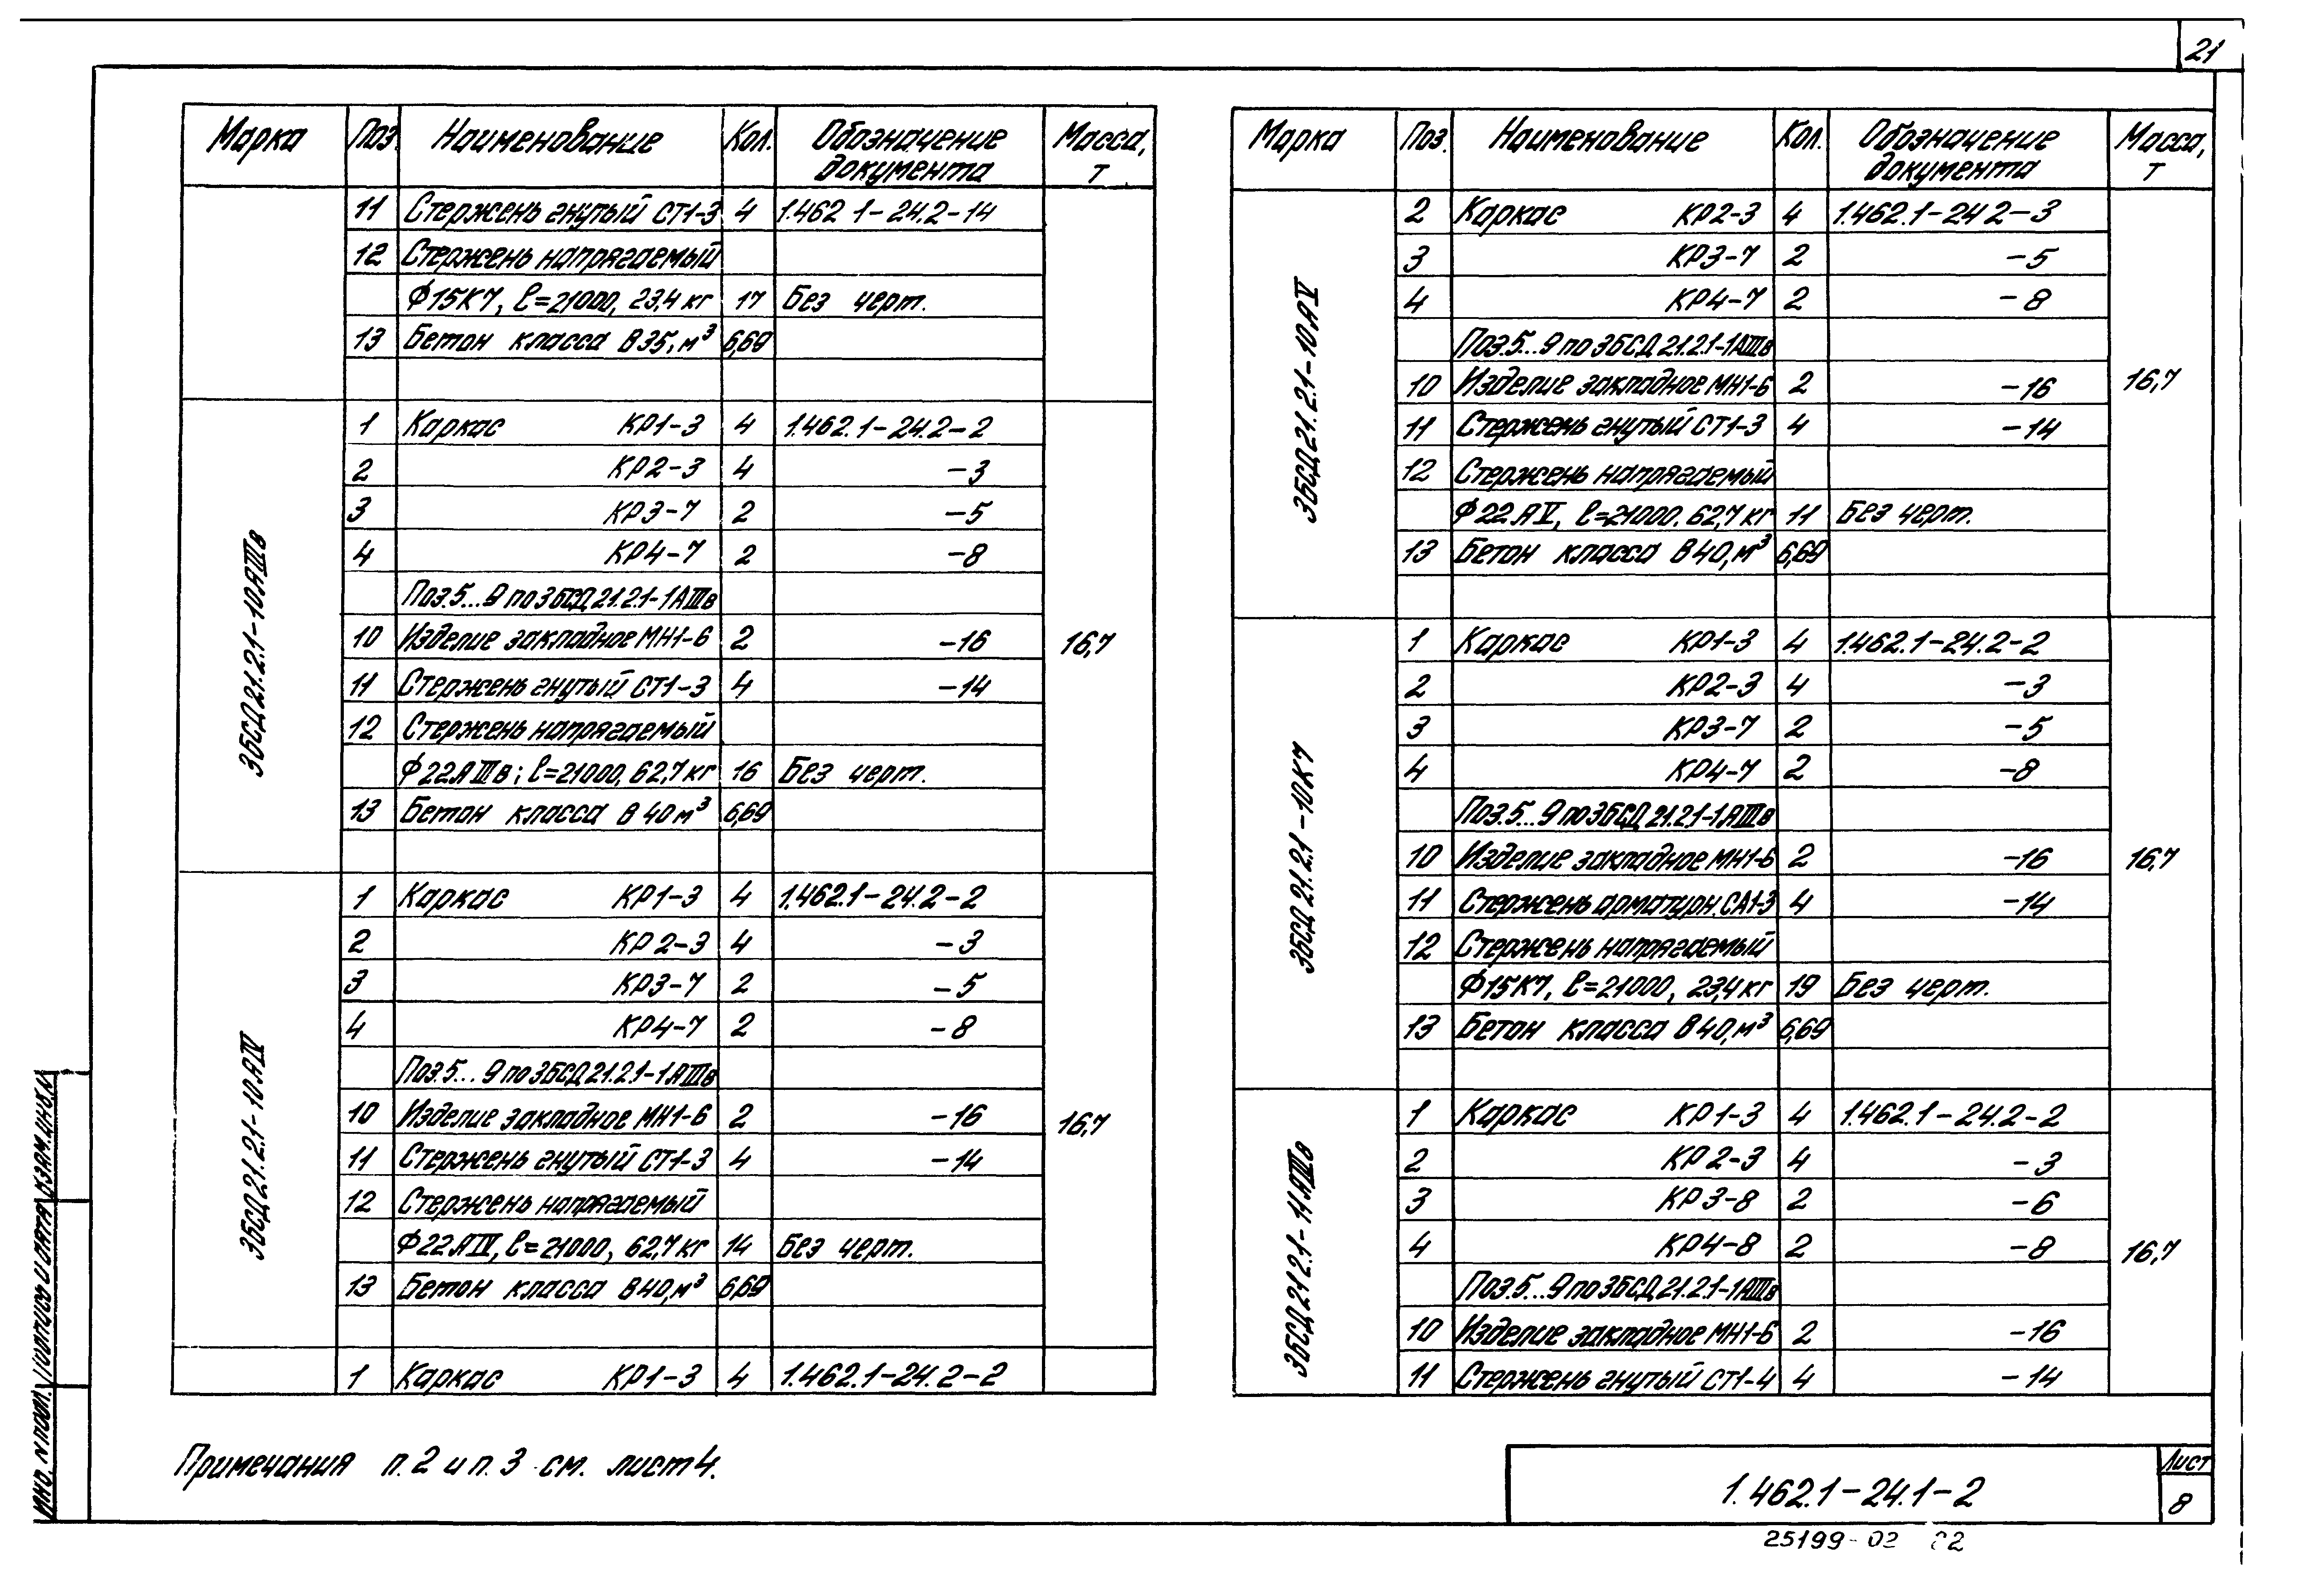 21
Марка Поз. Наименование Кол. Обозначение документа Масса, т
11 Стержень гнутый СТ1-3 4 1.462 1-24.2-14
12 Стержень напрягаемый
Ф15К7, ℓ=21000, 23,4 кг 17 Без черт.
13 Бетон класса В35, м³ 6,69
3БСД21.2.1-10АIIIв
1 Каркас КР1-3 4 1.462.1-24.2-2
2 КР2-3 4 -3
3 КР3-7 2 -5
4 КР4-7 2 -8
Поз.5...9 по 3БСД21.2.1-1АIIIв
10 Изделие закладное МН1-6 2 -16 16,7
11 Стержень гнутый СТ1-3 4 -14
12 Стержень напрягаемый
Ф22АIIIв; ℓ=21000, 62,7 кг 16 Без черт.
13 Бетон класса В 40 м³ 6,69
3БСД21.2.1-10АIV
1 Каркас КР1-3 4 1.462.1-24.2-2
2 КР2-3 4 -3
3 КР3-7 2 -5
4 КР4-7 2 -8
Поз.5...9 по 3БСД21.2.1-1АIIIв
10 Изделие закладное МН1-6 2 -16 16,7
11 Стержень гнутый СТ1-3 4 -14
12 Стержень напрягаемый
Ф22АIV, ℓ=21000, 62,7 кг 14 Без черт.
13 Бетон класса В40, м³ 6,69
1 Каркас КР1-3 4 1.462.1-24.2-2
Марка Поз. Наименование Кол. Обозначение документа Масса, т
3БСД21.2.1-10АV
2 Каркас КР2-3 4 1.462.1-24 2-3
3 КР3-7 2 -5
4 КР4-7 2 -8
Поз.5...9 по 3БСД21.2.1-1АIIIв
10 Изделие закладное МН1-6 2 -16 16,7
11 Стержень гнутый СТ1-3 4 -14
12 Стержень напрягаемый
Ф22АV, ℓ=21000. 62,7 кг 11 Без черт.
13 Бетон класса В40, м³ 6,69
3БСД21.2.1-10К7
1 Каркас КР1-3 4 1.462.1-24.2-2
2 КР2-3 4 -3
3 КР3-7 2 -5
4 КР4-7 2 -8
Поз.5...9 по 3БСД21.2.1-1АIIIв
10 Изделие закладное МН1-6 2 -16 16,7
11 Стержень арматурн. СА1-3 4 -14
12 Стержень напрягаемый
Ф15К7, ℓ=21000, 23,4 кг 19 Без черт.
13 Бетон класса В40, м³ 6,69
3БСД21 2.1-11АIIIв
1 Каркас КР1-3 4 1.462.1-24.2-2
2 КР2-3 4 -3
3 КР3-8 2 -6
4 КР4-8 2 -8 16,7
Поз.5...9 по 3БСД21.2.1-1АIIIв
10 Изделие закладное МН1-6 2 -16
11 Стержень гнутый СТ1-4 4 -14
Примечания п.2 и п.3 см. лист 4.
1.462.1-24.1-2
Лист
8
25199-02
Инв. N подл. Подпись и дата Взам.инв.N